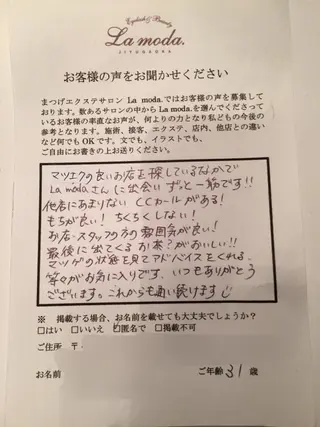 Eyelash & Beauty
La moda.
JIYUGAOKA
お客様の声をお聞かせください
まつげエクステサロン La moda.ではお客様の声を募集して
おります。数あるサロンの中からLa moda.を選んでくださって
いるお客様の率直なお声が、何よりの力となり私どもの今後の
参考となります。施術、接客、エクステ、店内、他店との違い
など何でもOKです。文でも、イラストでも、
ご自由にお書きの上お送りください。
マツエクの良いお店を探しているなかで
La modaさんに出会いずっと一筋です!!
他店にあまりない CCカールがある!
もちが良い! ちくちくしない!
お店・スタッフの方の雰囲気が良い!
最後に出てくるお茶?がおいしい!!
マツゲの状態を見てアドバイスをくれる。
等々がお気に入りです。いつもありがとう
ございます。これからも通い続けます
※ 掲載する場合、お名前を載せても大丈夫でしょうか?
□はい □いいえ ☑匿名で □掲載不可
ご住所 〒
お名前 ご年齢 31 歳